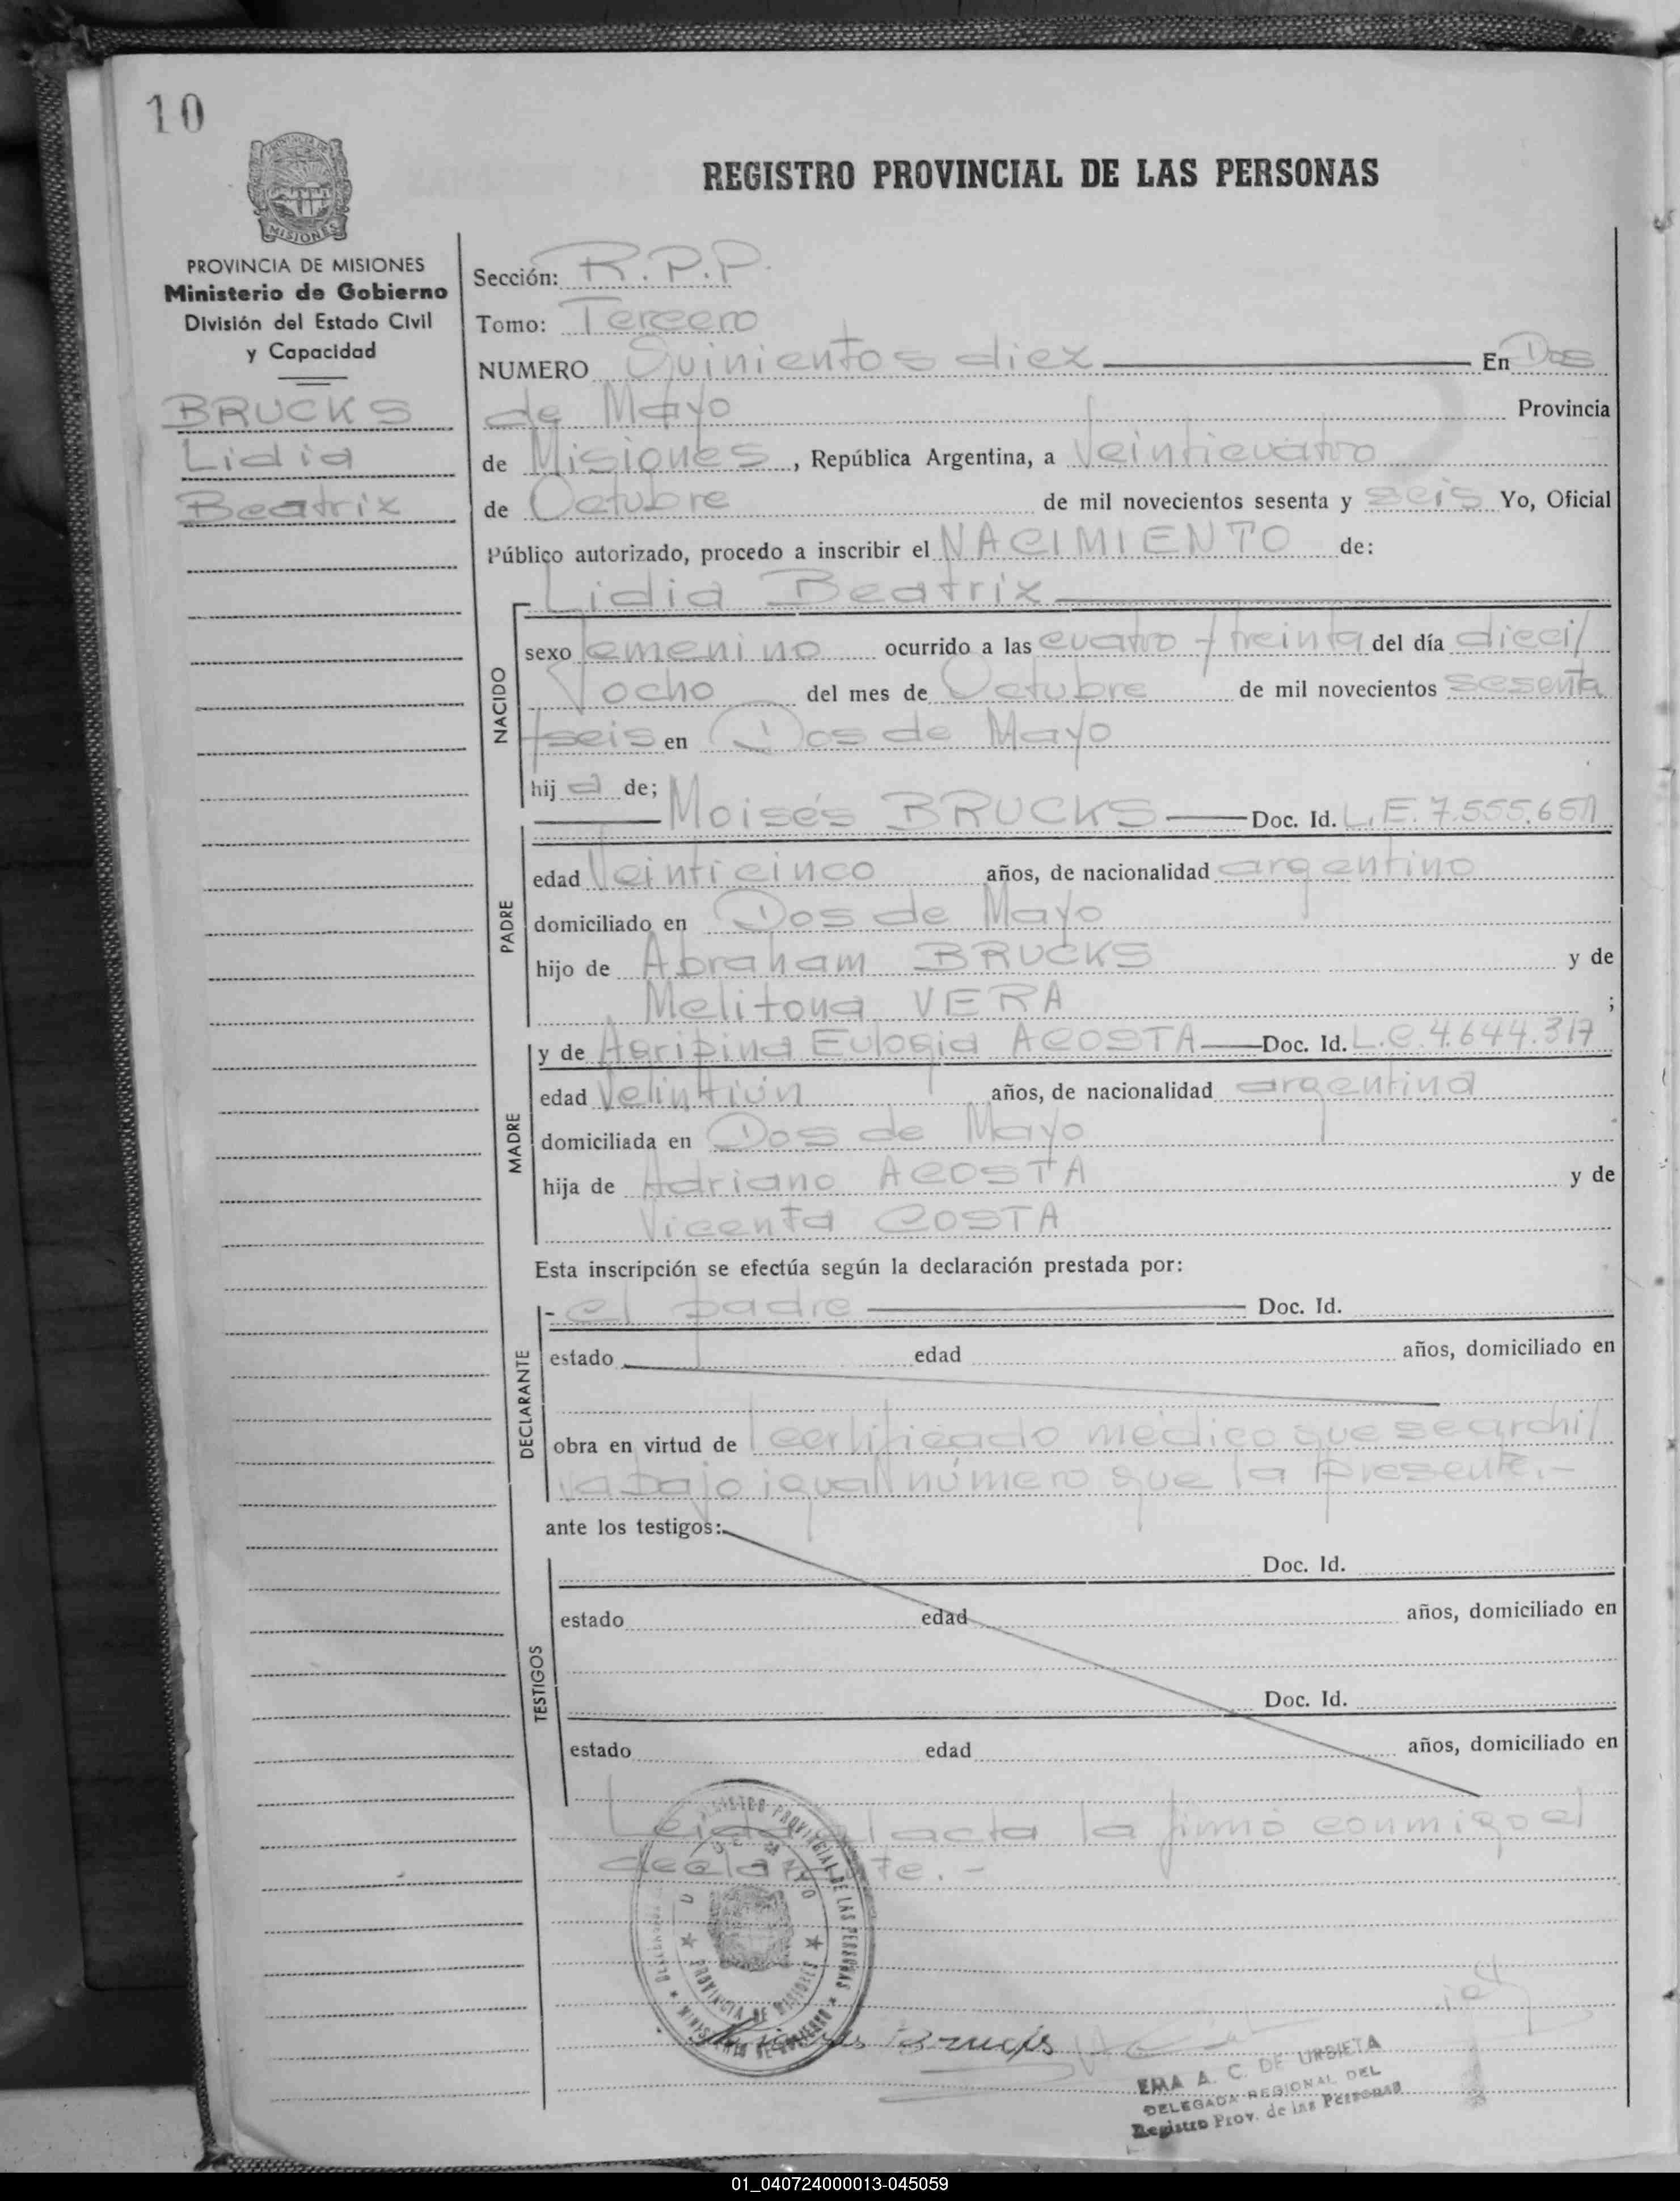 10
MISIONES
REGISTRO PROVINCIAL DE LAS PERSONAS
PROVINCIA DE MISIONES
Ministerio de Gobierno
División del Estado Civil
y Capacidad
BRUCKS
Lidia
Beatriz
Sección: R.P.P.
Tomo: Tercero
NUMERO Quinientos diez En Dos
de Mayo Provincia
de Misiones, República Argentina, a Veinticuatro
de Octubre de mil novecientos sesenta y seis Yo, Oficial
Público autorizado, procedo a inscribir el NACIMIENTO de:
Lidia Beatriz
NACIDO
sexo femenino ocurrido a las cuatro y treinta del día dieci/
ocho del mes de Octubre de mil novecientos sesenta
y seis en Dos de Mayo
hija de;
Moisés BRUCKS Doc. Id. L.E. 7.555.651
PADRE
edad Veinticinco años, de nacionalidad argentino
domiciliado en Dos de Mayo
hijo de Abraham BRUCKS y de
Melitona VERA ;
y de Agripina Eulogia ACOSTA Doc. Id. L.C. 4.644.317
MADRE
edad Veintiún años, de nacionalidad argentina
domiciliada en Dos de Mayo
hija de Adriano ACOSTA y de
Vicenta COSTA
Esta inscripción se efectúa según la declaración prestada por:
DECLARANTE
- el padre Doc. Id.
estado edad años, domiciliado en
obra en virtud de certificado médico que se archi/
va bajo igual número que la presente.-
ante los testigos:
TESTIGOS
Doc. Id.
estado edad años, domiciliado en
Doc. Id.
estado edad años, domiciliado en
Leida el acta la firmó conmigo el
declarante.-
REGISTRO PROVINCIAL DE LAS PERSONAS
MINISTERIO DE GOBIERNO
PROVINCIA DE MISIONES
Moises Brucks
EMA A. C. DE URBIETA
DELEGADA REGIONAL DEL
Registro Prov. de las Personas
01_040724000013-045059